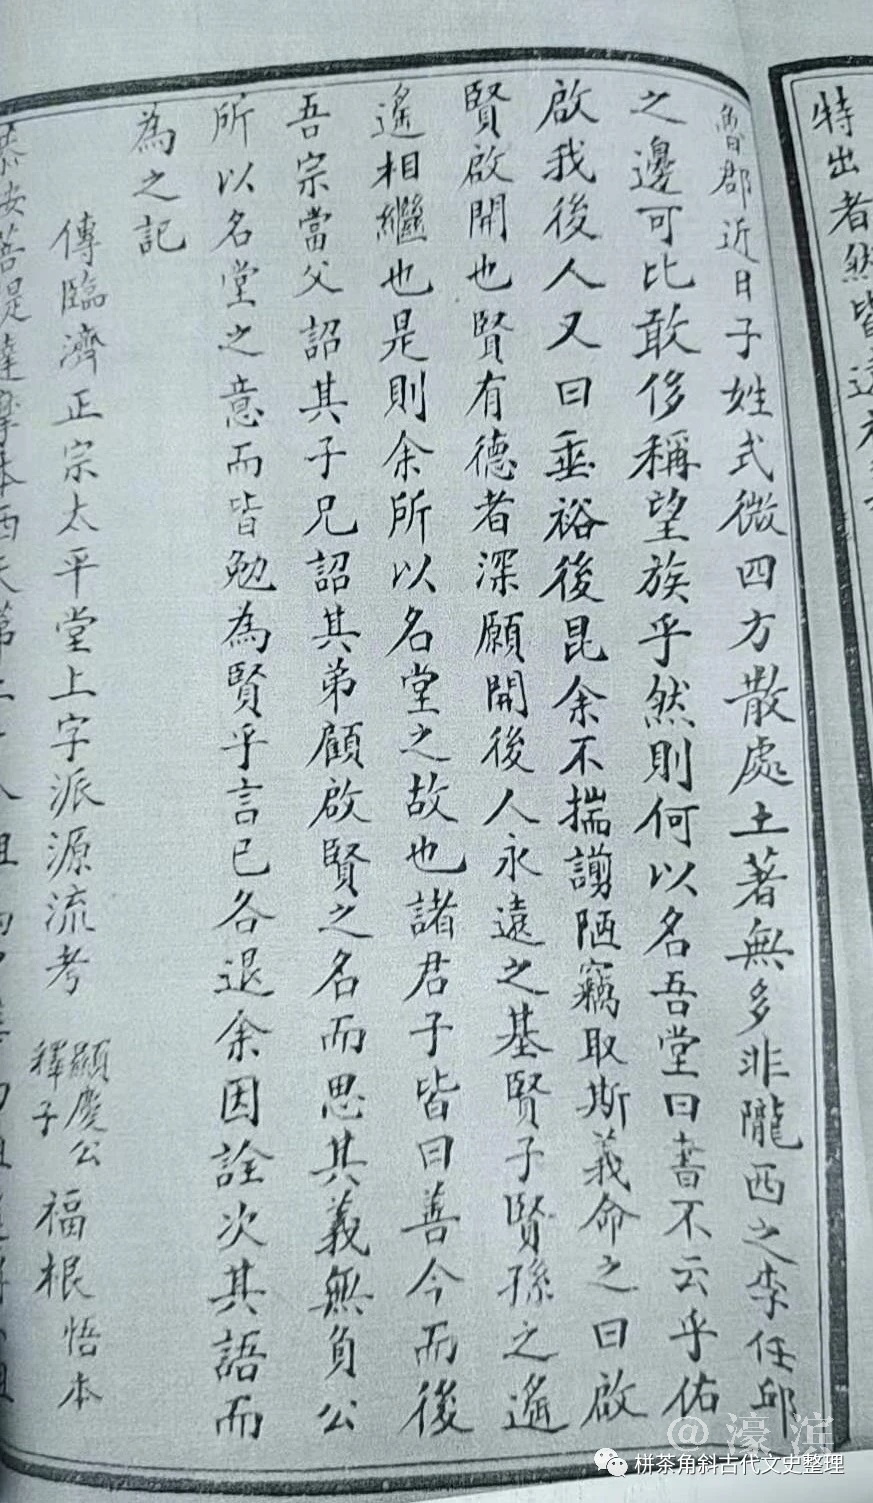 特出者然皆
魯郡近日子姓式微四方散處土著無多非隴西之李任邱
之邊可比敢侈稱望族乎然則何以名吾堂曰書不云乎佑
啟我後人又曰垂裕後昆余不揣謭陋竊取斯義命之曰啟
賢啟開也賢有德者深願開後人永遠之基賢子賢孫之遙
遙相繼也是則余所以名堂之故也諸君子皆曰善今而後
吾宗當父詔其子兄詔其弟顧啟賢之名而思其義無負公
所以名堂之意而皆勉為賢乎言已各退余因詮次其語而
為之記
傳臨濟正宗太平堂上字派源流考 顯慶公釋子 福根悟本
菩提達摩本西天第二十八祖
@濠滨
栟茶角斜古代文史整理